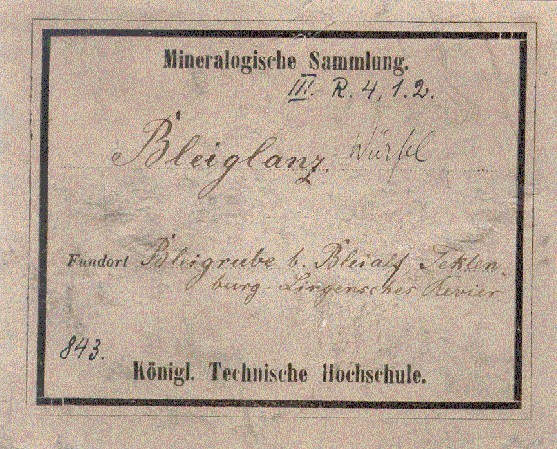 Mineralogische Sammlung.
III. R. 4. 1. 2.
Bleiglanz. Würfel
Fundort Bleigrube b. Bleialf Teklen-
burg-Lingensches Revier
843.
Königl. Technische Hochschule.